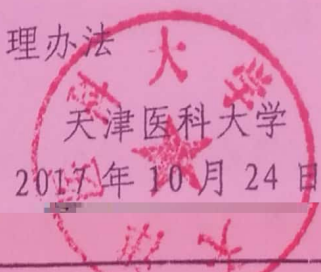 理办法
天津医科大学
2017年10月24日